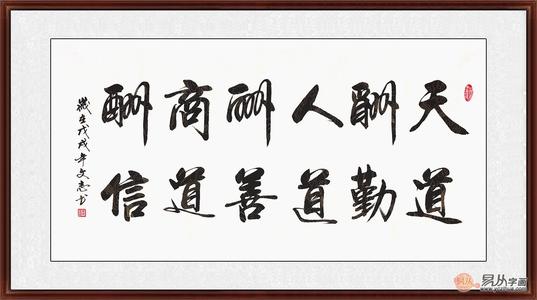 天道
酬勤
人道
酬善
商道
酬信
歲在戊戌年文志书
易从字画
www.yczihua.com